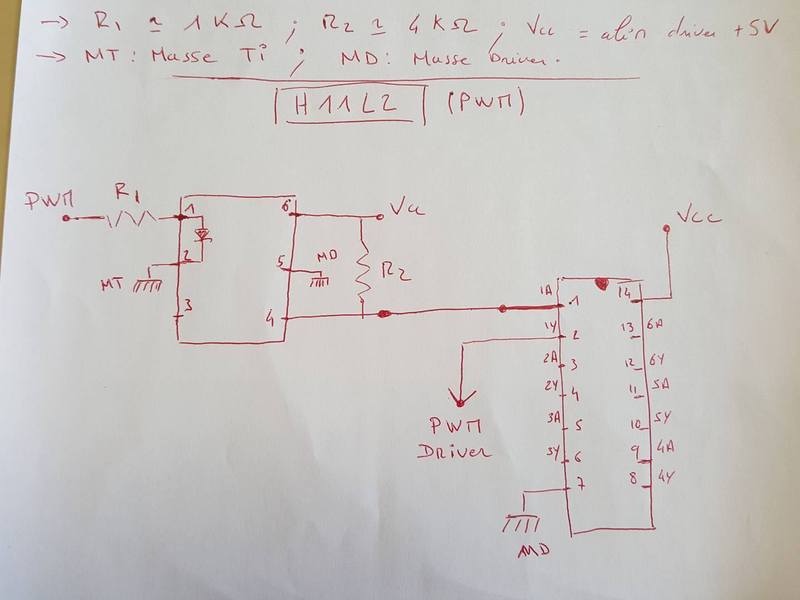 → R1 ≃ 1 KΩ ; R2 ≃ 4 KΩ ; Vcc = alim driver +5V
→ MT : Masse Ti ; MD : Masse Driver.
H11L2 (PWM)
PWM R1 1 6 Vcc
2 MT 5 MD R2
3 4
Vcc
1A 1 14
1Y 2 13 6A
2A 3 12 6Y
2Y 4 11 5A
3A 5 10 5Y
3Y 6 9 4A
7 8 4Y
PWM
Driver
MD